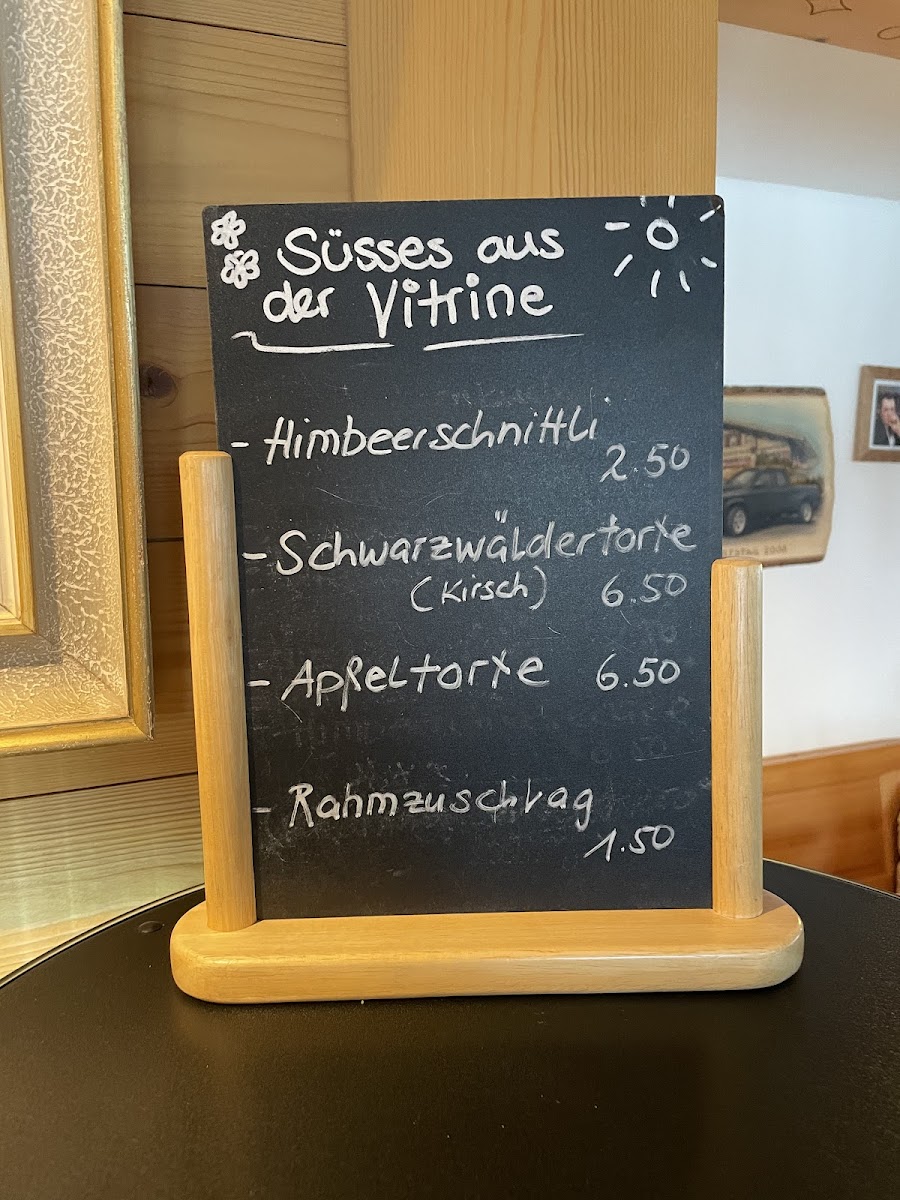 Süsses aus
der Vitrine
- Himbeerschnittli
2.50
- Schwarzwäldertorte
(Kirsch) 6.50
- Apfeltorte 6.50
- Rahmzuschlag
1.50